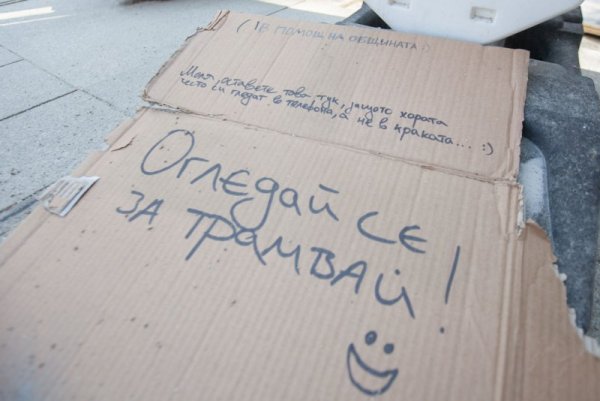 (!В ПОМОЩ НА ОБЩИНАТА:)
Моля, оставете това тук, защото хората
често си гледат в телефона, а не в краката... :)
Огледай се
за трамвай!